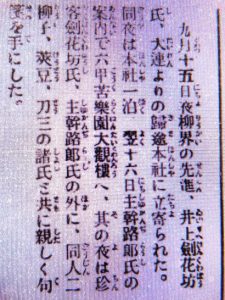 九月十五日夜柳界の先進、井上劍花坊
氏、大連よりの歸途本社に立寄られた。
同夜は本社一泊 翌十六日主幹路郎氏の
案内で六甲苦樂園大觀樓へ、其の夜は珍
客劍花坊氏、主幹路郎氏の外に、同人二
柳子、莢豆、刀三の諸氏と共に親しく句
箋を手にした。